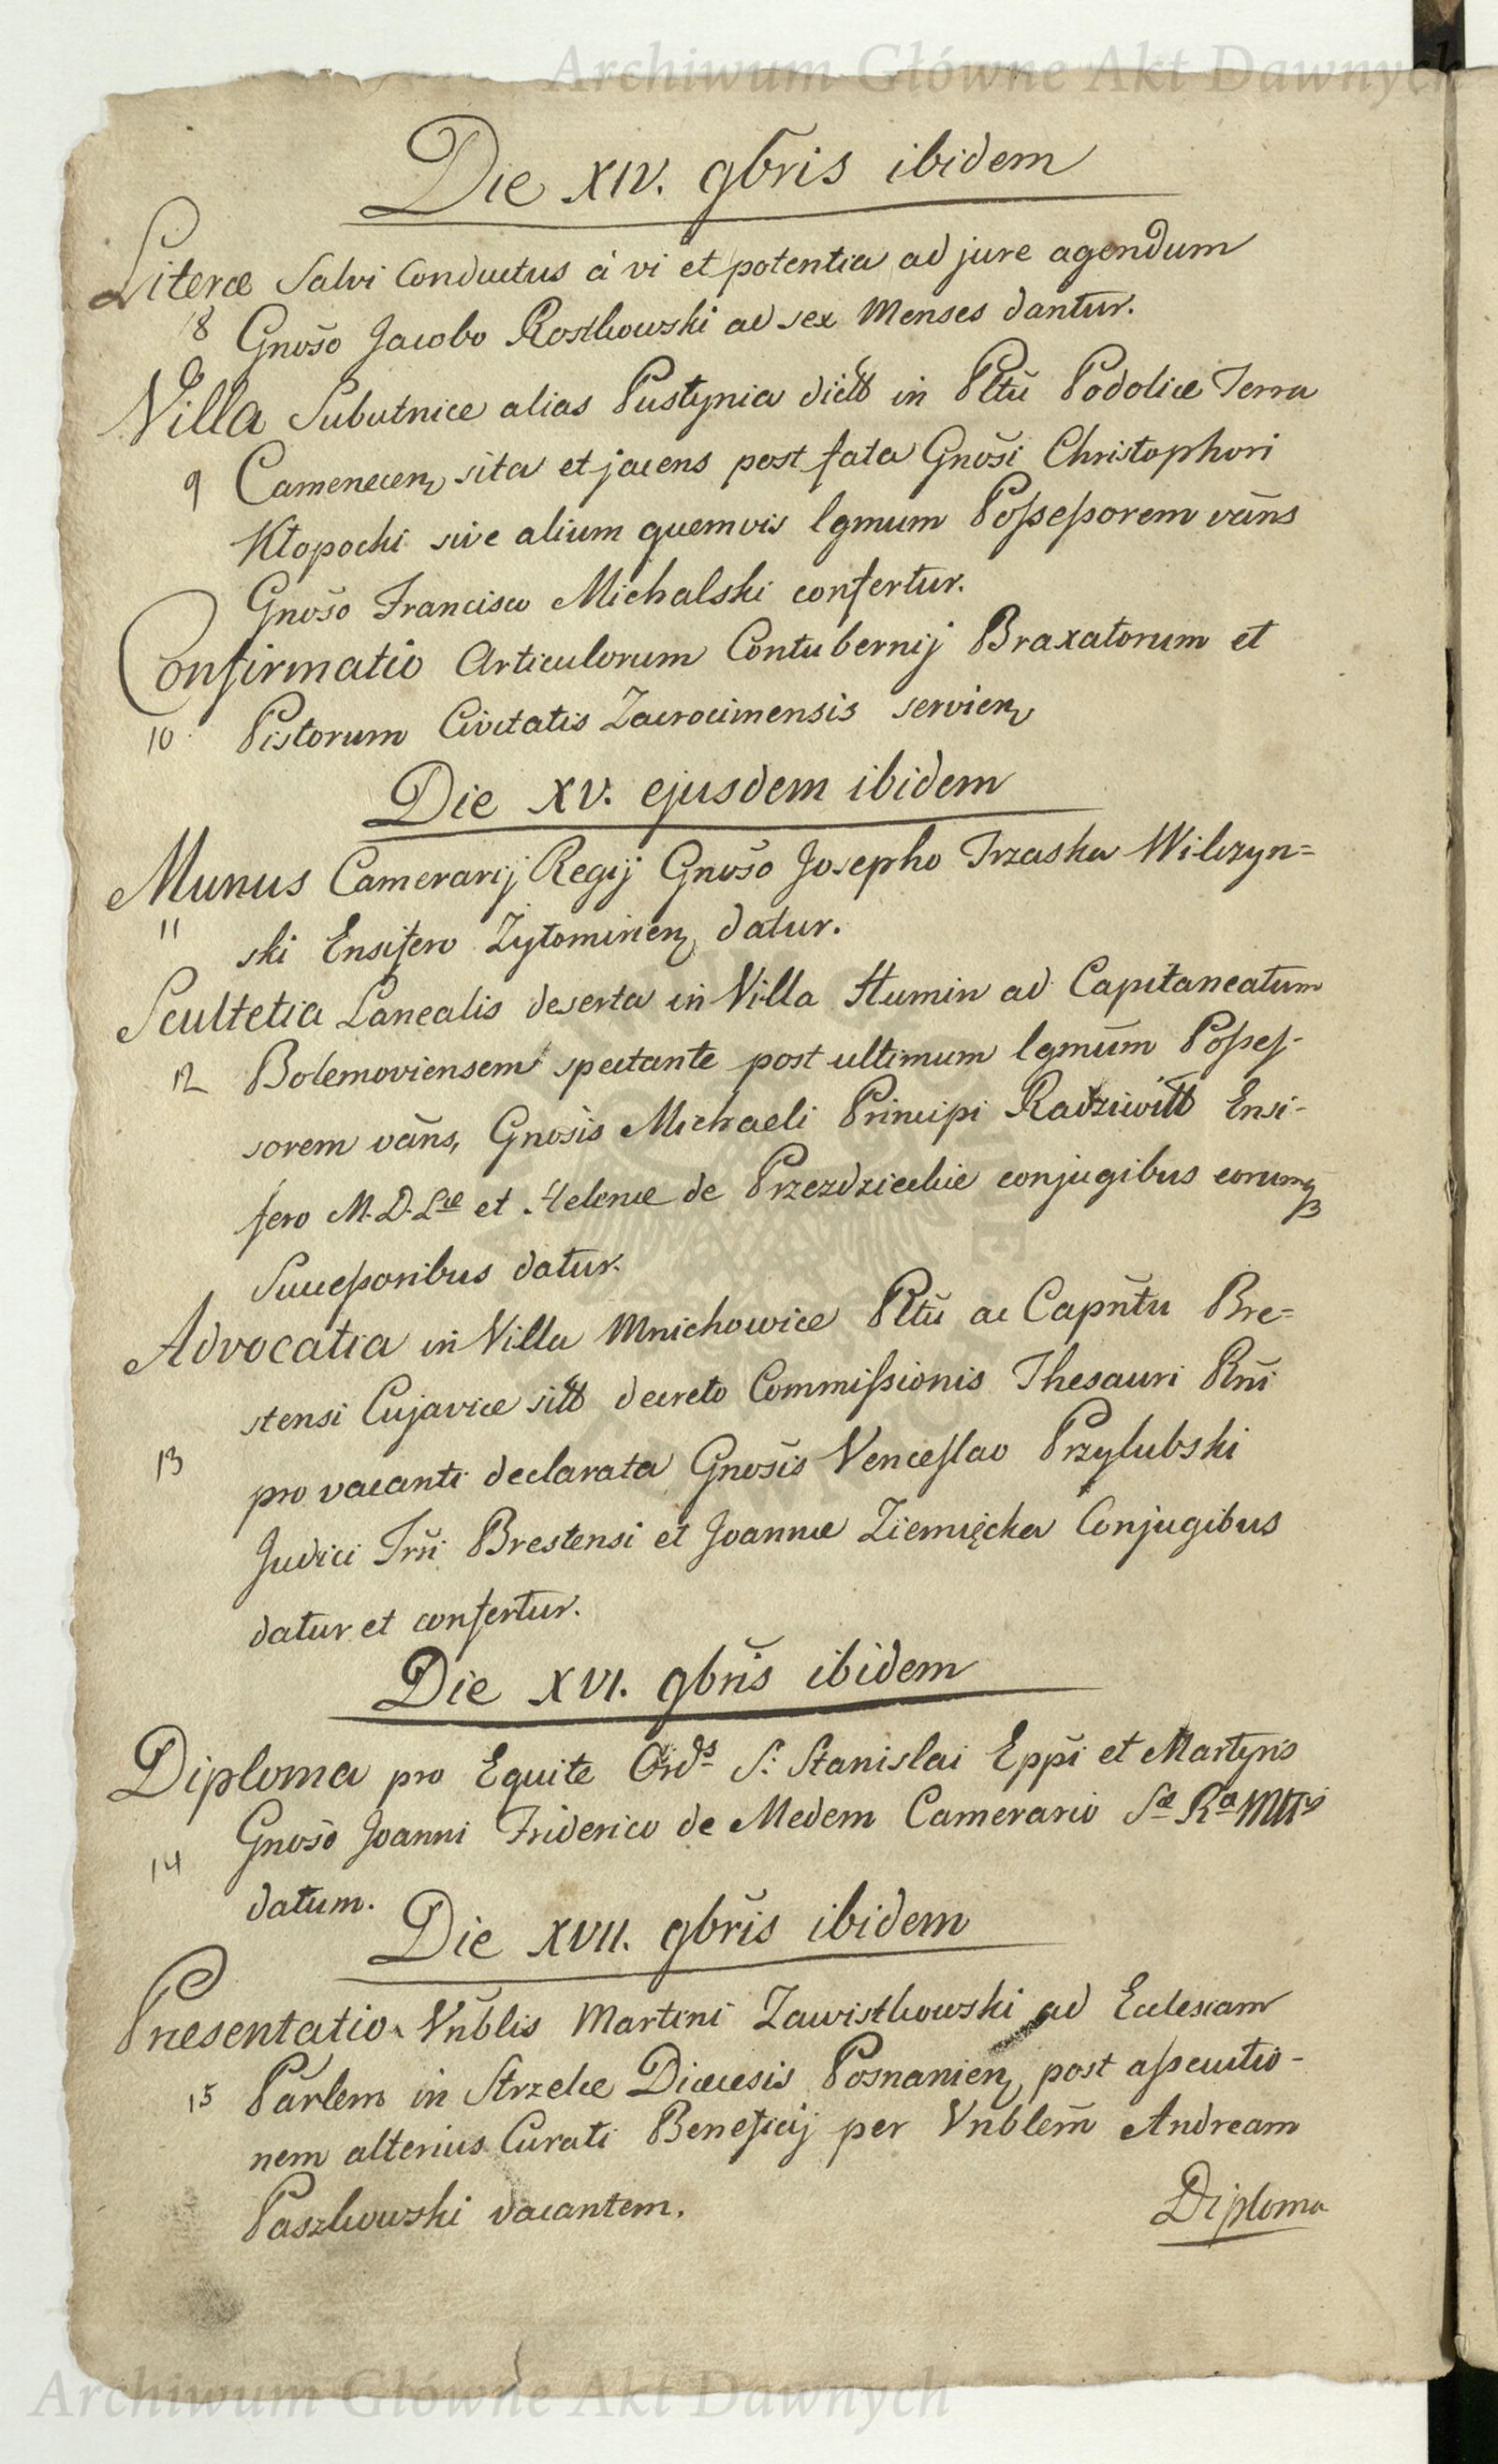 Archiwum Główne Akt Dawnych
Die XIV. 9bris ibidem
Literæ Salvi Conductus à vi et potentia ad jure agendum
8 Gnoso Jacobo Rostkowski ad sex Menses dantur.
Villa Subutnice alias Pustynia dicta in Pltũ Podoliæ Terra
9 Camenecen, sita et jacens post fata Gnosi Christophori
Kłopocki sive alium quemvis lgmum Poßeßorem vãns
Gnoso Francisco Michalski confertur.
Confirmatio Articulorum Contubernij Braxatorum et
10 Pistorum Civitatis Zacrocimensis servien,
Die XV. ejusdem ibidem
Munus Camerarij Regij Gnoso Josepho Trzaska Wilczyn=
11 ski Ensifero Zytomirien, datur.
Scultetia Lanealis deserta in Villa Humin ad Capitaneatum
12 Bolemoviensem spectante post ultimum lgmũm Poßeß-
sorem vãns, Gnosis Michaeli Principi Radziwiłł Ensi-
fero M.D.Læ et Helenæ de Przezdzieckie conjugibus eorumq3
Succeßoribus datur.
Advocatia in Villa Mnichowice Pltũ ac Capntu Bre=
stensi Cujaviæ sitta decreto Commißionis Thesauri Rñi
13 pro vacanti declarata Gnosis Venceslao Przylubski
Judici Trri Brestensi et Joannæ Ziemięcka Conjugibus
datur et confertur.
Die XVI. 9bris ibidem
Diploma pro Equite Ords S: Stanislai Eppi et Martyris
14 Gnoso Joanni Friderico de Medem Camerario Sæ Ra Mttis
datum.
Die XVII. 9bris ibidem
Præsentatio Vnblis Martini Zawistkowski ad Ecclesiam
15 Parlem in Strzelce Diæcesis Posnanien, post aßecutio-
nem alterius Curati Beneficij per Vnblem Andream
Paszkowski vacantem.
Diploma
Archiwum Główne Akt Dawnych